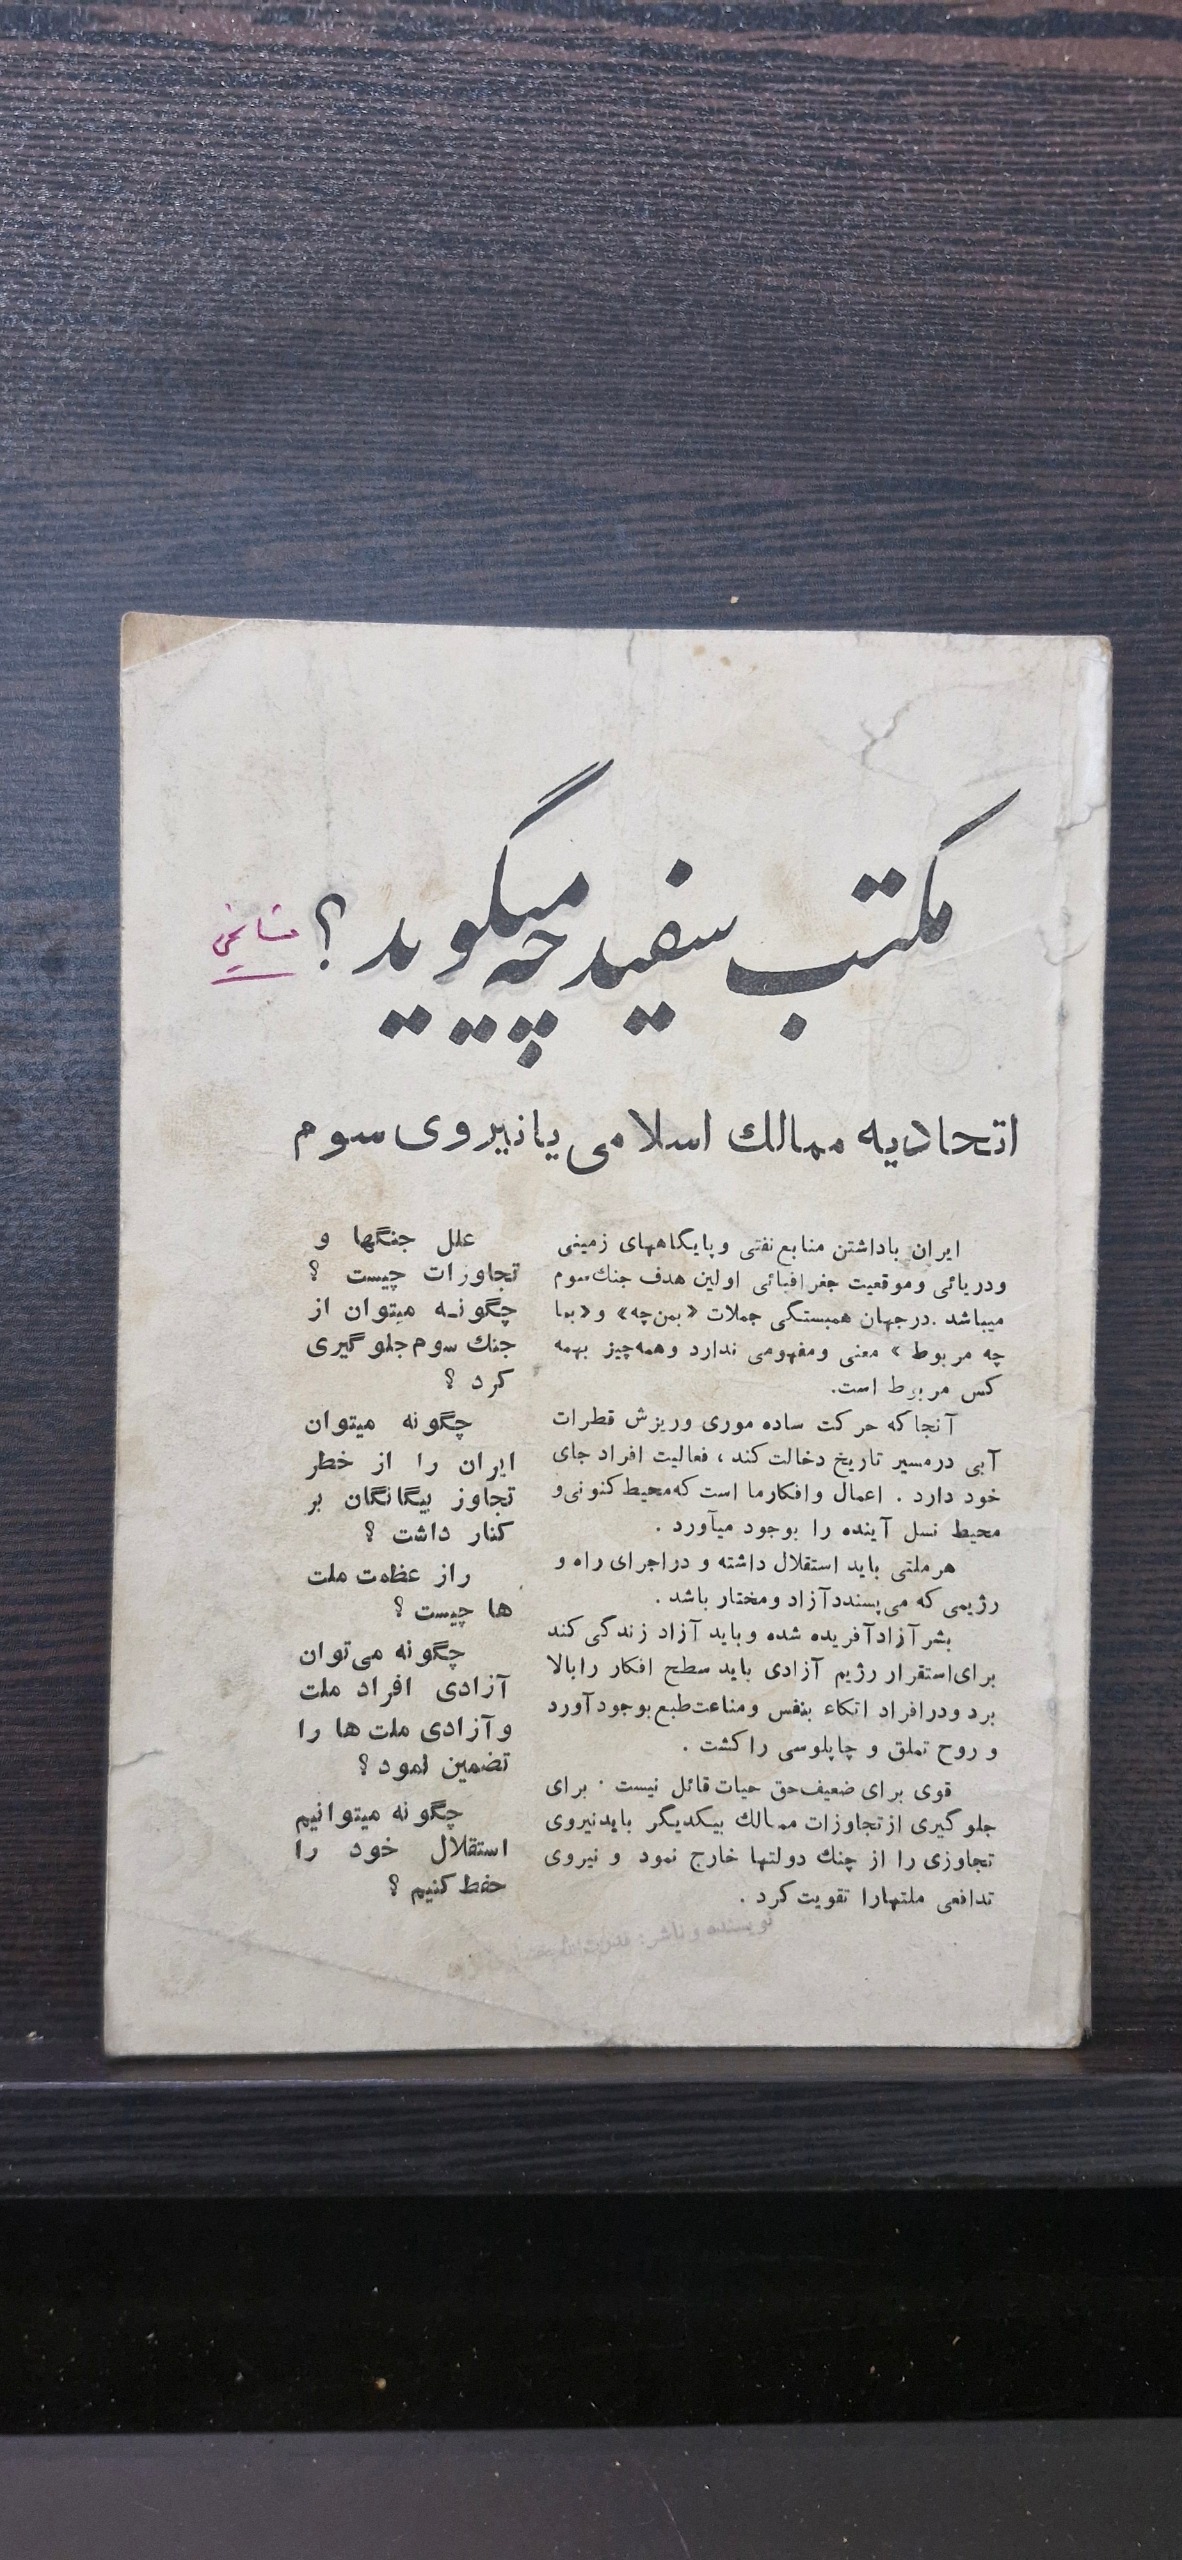 مکتب سفید چه میگوید ؟
مشایخی
اتحادیه ممالك اسلامی یا نیروی سوم
ایران باداشتن منابع نفتی و پایگاههای زمینی
ودریائی وموقعیت جغرافیائی اولین هدف جنك سوم
میباشد .درجهان همبستگی جملات «بمن چه» و «بما
چه مربوط » معنی ومفهومی ندارد وهمه چیز بهمه
کس مربوط است.
آنجا که حرکت ساده موری وریزش قطرات
آبی درمسیر تاریخ دخالت کند ، فعالیت افراد جای
خود دارد . اعمال وافکارما است که محیط کنونی و
محیط نسل آینده را بوجود میآورد .
هرملتی باید استقلال داشته و دراجرای راه و
رژیمی که می پسندد آزاد ومختار باشد .
بشر آزاد آفریده شده وباید آزاد زندگی کند
برای استقرار رژیم آزادی باید سطح افکار رابالا
برد ودرافراد اتکاء بنفس ومناعت طبع بوجود آورد
و روح تملق و چاپلوسی راکشت .
قوی برای ضعیف حق حیات قائل نیست . برای
جلوگیری ازتجاوزات ممالك بیکدیگر بایدنیروی
تجاوزی را از چنك دولتها خارج نمود و نیروی
تدافعی ملتهارا تقویت کرد .
علل جنگها و
تجاوزات چیست ؟
چگونه میتوان از
جنك سوم جلوگیری
کرد ؟
چگونه میتوان
ایران را از خطر
تجاوز بیگانگان بر
کنار داشت ؟
راز عظمت ملت
ها چیست ؟
چگونه می توان
آزادی افراد ملت
و آزادی ملت ها را
تضمین نمود ؟
چگونه میتوانیم
استقلال خود را
حفظ کنیم ؟
نویسنده و ناشر: